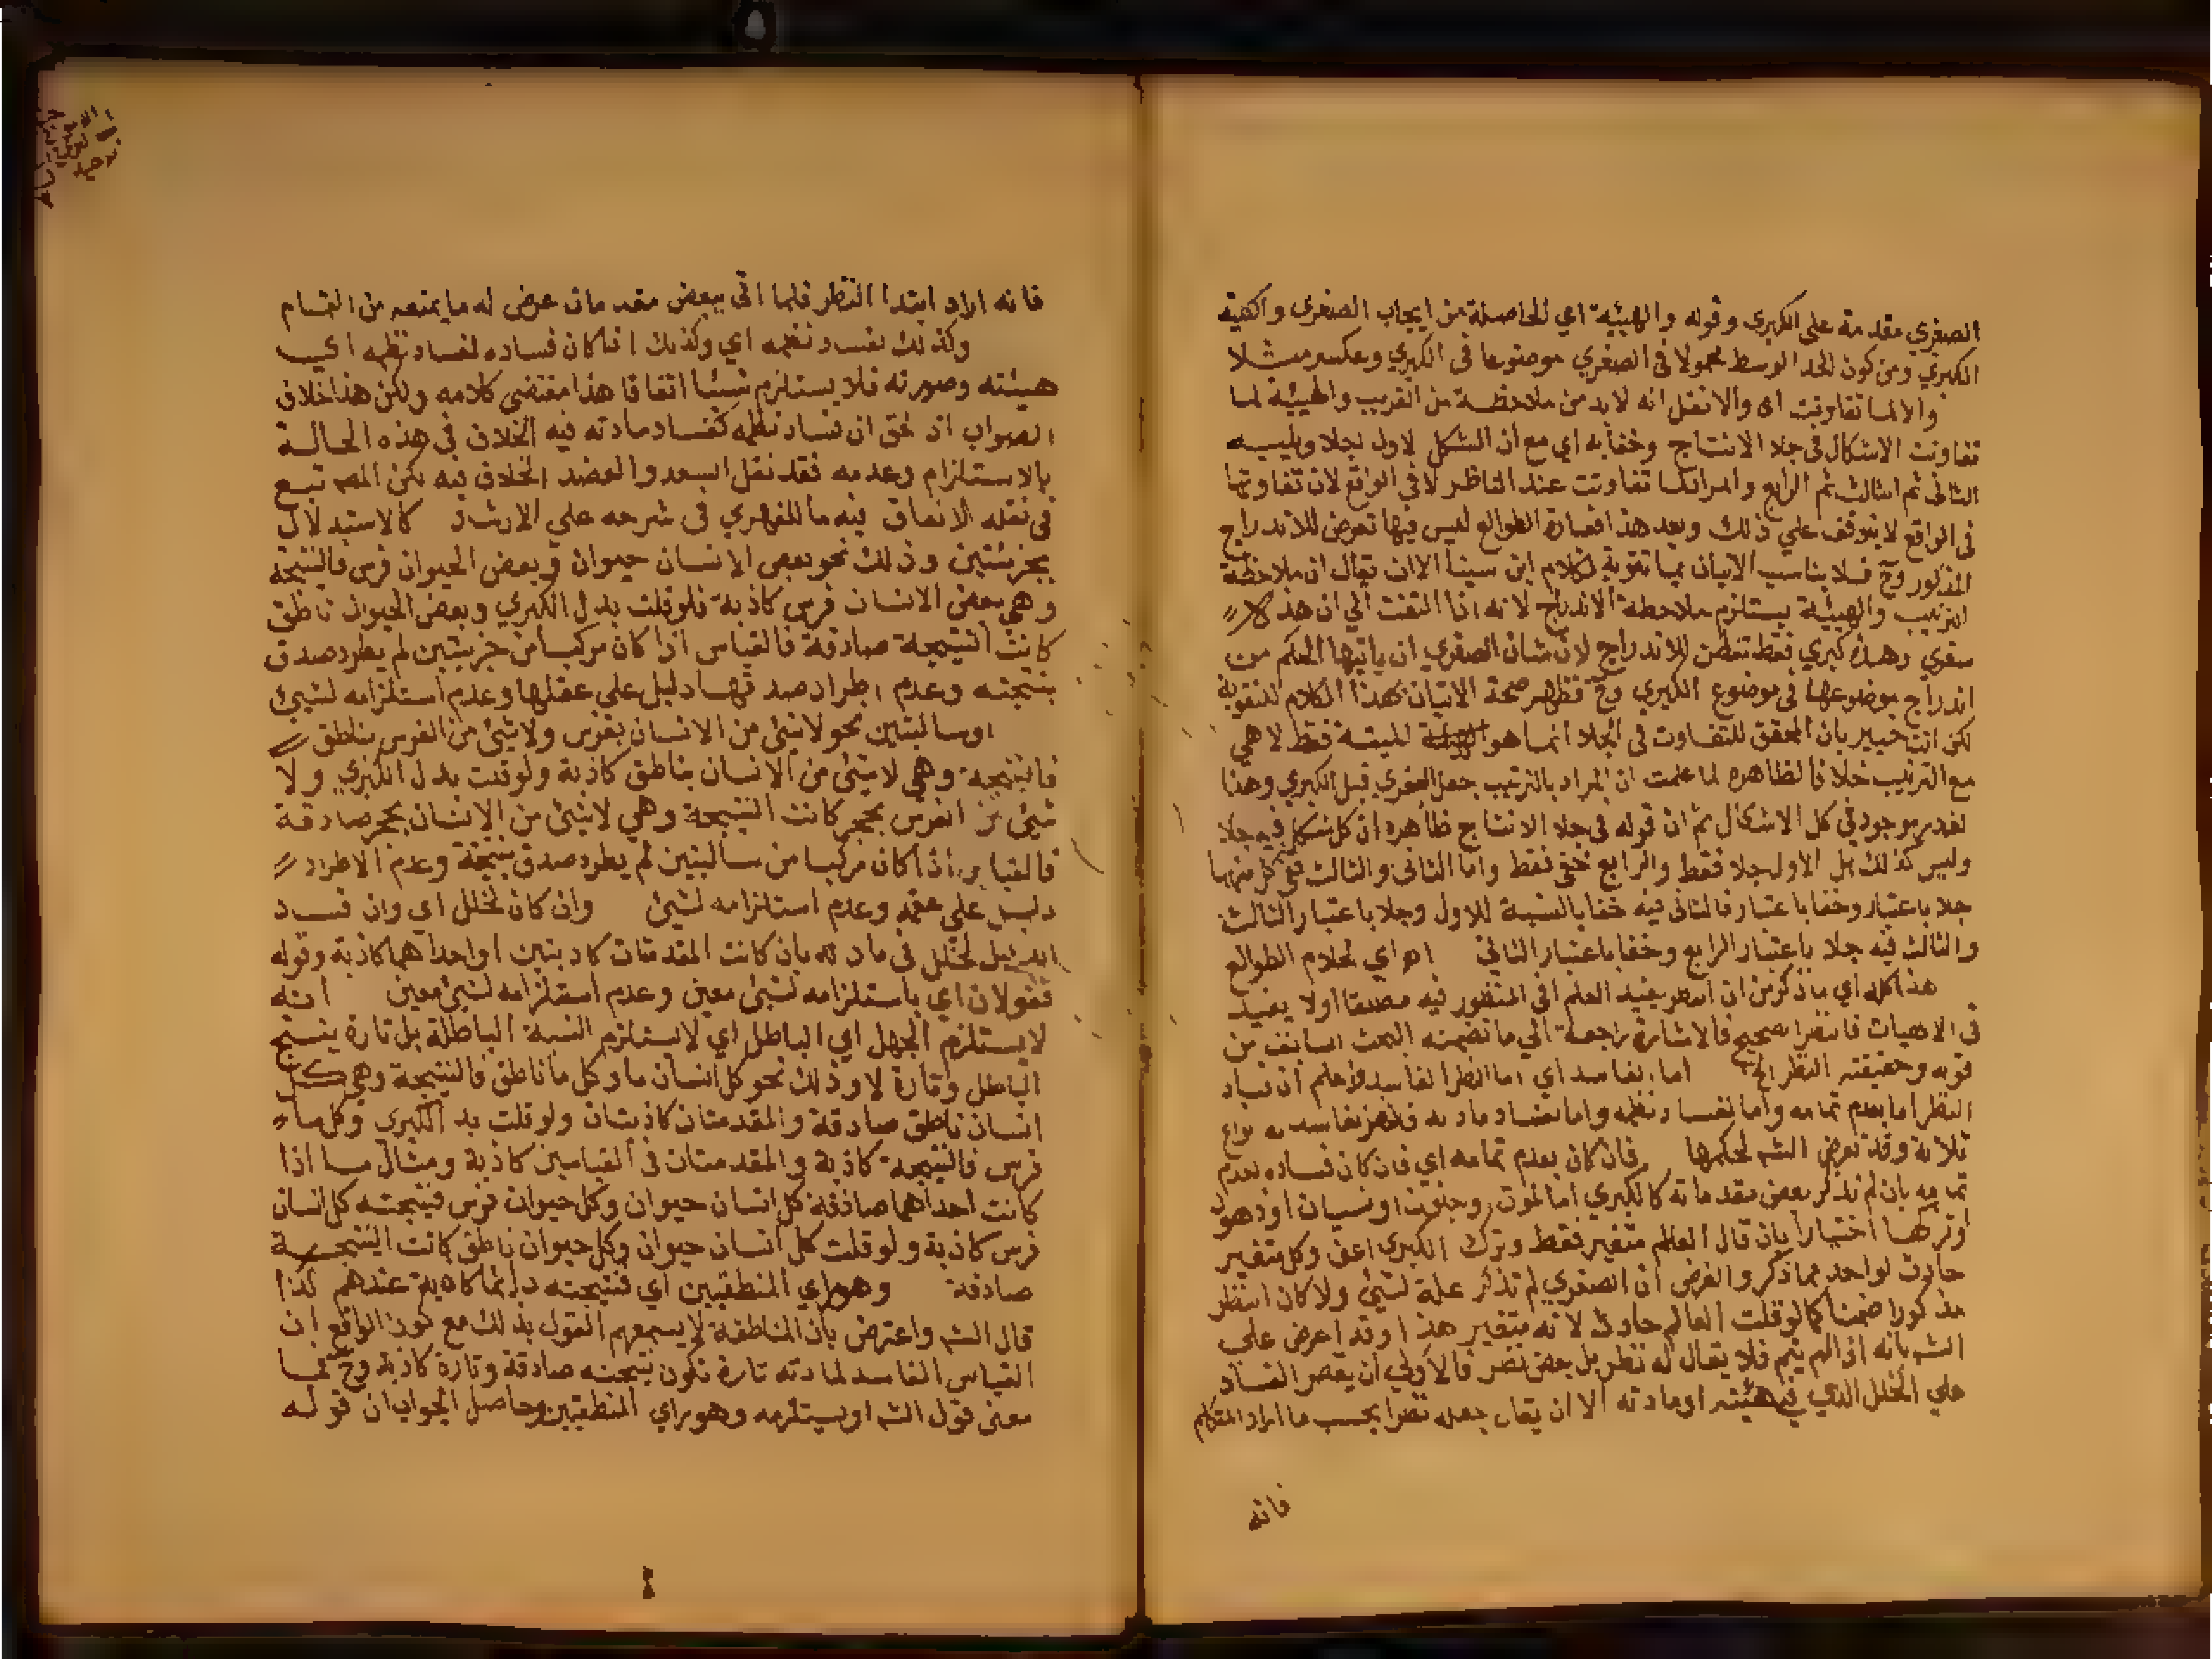 الصغري مقدمة على الكبري وقوله والهيئة اي الحاصلة من ايجاب الصغرى والكلية
الكبري ومن كون الحد الوسط محمولا في الصغري موضوعا في الكبري وعكسه مثلا
والا لما تفاوتت اي والا نقل انه لابد من ملاحظة من القريب والهيئة لما
تفاوتت الاشكال في جلا الانتاج وخفايه اي مع ان الشكل الاول اجلا ويليه
الثاني ثم الثالث ثم الرابع والمراد تفاوتت عند الناظر لا في الواقع لان تفاوتها
في الواقع لا يتوقف علي ذلك وبعد هذا فعبارة الطوالع ليس فيها تعرض للاندراج
المذكور وح فلا يناسب الاتيان بها تقوية لكلام ابن سينا الا ان يقال ان ملاحظة
الترتيب والهيئة يستلزم ملاحظة الاندراج لانه اذا التفت الي ان هذه
صغري وهذه كبري فقط تفطن للاندراج لان شان الصغري ان ياتيها الحكم من
اندراج موضوعها في موضوع الكبري وح فظهر صحة الاتيان بهذا الكلام للتقوية
لكن انت خبير بان المحقق للتفاوت في الجلا انما هو الهيئة فقط لا هي
مع الترتيب خلافا لظاهره لما علمت ان المراد بالترتيب جعل الصغري قبل الكبري وهذا
القدر موجود في كل الاشكال ثم ان قوله في جلا الانتاج ظاهره ان كل شكل فيه جلا
وليس كذلك بل الاول جلا فقط والرابع خفي فقط واما الثاني والثالث ففي كل منهما
جلا باعتبار وخفا باعتبار فالثاني فيه خفا بالنسبة للاول وجلا باعتبار الثالث
والثالث فيه جلا باعتبار الرابع وخفا باعتبار الثاني اه اي كلام الطوالع
هذا كله اي ما ذكر من ان النظر يفيد العلم في المنظور فيه مطلقا اولا يفيد
في الالهيات فالنظر الصحيح فالاشارة راجعة الي ما تضمنه البحث السابق من
قوله وحقيقته النظر الخ اما الفاسد اي اما النظر الفاسد فاعلم ان فساد
النظر اما بعدم تمامه واما لفساد نظمه واما لفساد مادته فالنظر الفاسد انواع
ثلاثة وقد تعرض الشم لحكمها فان كان بعدم تمامه اي فان كان فساده لعدم
تمامه بان لم تذكر بعض مقدماته كالكبري اما لموت وجنون او نسيان او ذهول
او تركها اختيارا بان قال العالم متغير فقط وترك الكبري اعني وكل متغير
حادث لواحد مما ذكر والفرض ان الصغري لم تذكر علة لشيئ والا كان النظر
مذكورا ضمنا كما لو قلت العالم حادث لانه متغير هذا وقد اعرض علي
الشم بانه اذا لم يتم فلا يقال له نظر بل بعض نظر فالاولي ان يقصر الفساد
علي الخلل الذي في هيئته او مادته الا ان يقال جعله نظرا بحسب ما اراد المتكلم
فانه
فانه اراد ابتدا النظر فلما اتي ببعض مقدمات عرض له ما يمنعه من التمام
وكذلك لفساد نظمه اي وكذلك اذا كان فساده لفساد نظمه اي
هيئته وصورته فلا يستلزم شيئا اتفاقا هذا مقتضي كلامه ولكن هذا خلاف
الصواب اذ الحق ان فساد نظمه كفساد مادته فيه الخلاف في هذه الحالة
بالاستلزام وعدمه فقد نقل السعد والعضد الخلاف فيه لكن المص تبع
في نقله الاتفاق فيه ما للفهري في شرحه علي الارشاد كالاستدلال
بجزئيتين وذلك نحو بعض الانسان حيوان وبعض الحيوان فرس فالنتيجة
وهي بعض الانسان فرس كاذبة فلو قلت بدل الكبري وبعض الحيوان ناطق
كانت النتيجة صادقة فالقياس اذا كان مركبا من جزئيتين لم يطرد صدق
نتيجته وعدم اطراد صدقها دليل على عقمها وعدم استلزامه لشيئ
او سالبتين نحو لا شيئ من الانسان بفرس ولا شيئ من الفرس بناطق
فالنتيجة وهي لا شيئ من الانسان بناطق كاذبة ولو قلت بدل الكبري ولا
شيئ من الفرس بحجر كانت النتيجة وهي لا شيئ من الانسان بحجر صادقة
فالقياس اذا كان مركبا من سالبتين لم يطرد صدق نتيجة وعدم الاطراد
دليل على عقمه وعدم استلزامه لشيئ وان كان لخلل اي وان فسد
الدليل لخلل في مادته بان كانت المقدمتان كاذبتين او احداهما كاذبة وقوله
فقولان اي باستلزامه لشيئ معين وعدم استلزامه لشيئ معين انه
لا يستلزم الجهل اي الباطل اي لا يستلزم النسبة الباطلة بل تارة ينتج
الباطل وتارة لا وذلك نحو كل انسان ما وكل ما ناطق فالنتيجة وهي كل
انسان ناطق صادقة والمقدمتان كاذبتان ولو قلت بدل الكبري وكل ما
فرس فالنتيجة كاذبة والمقدمتان في القياسين كاذبة ومثال ما اذا
كانت احداهما صادقة كل انسان حيوان وكل حيوان فرس فنتيجته كل انسان
فرس كاذبة ولو قلت كل انسان حيوان وكل حيوان ناطق كانت النتيجة
صادقة وهو راي المنطقيين اي فنتيجته دائما كاذبة عندهم كذا
قال الشم واعترض بان المناطقة لا يسعهم القول بذلك مع كون الواقع ان
القياس الفاسد لمادته تارة تكون نتيجته صادقة وتارة كاذبة وح فما
معني قول الشم او يستلزمه وهو راي المنطقيين وحاصل الجواب ان قوله